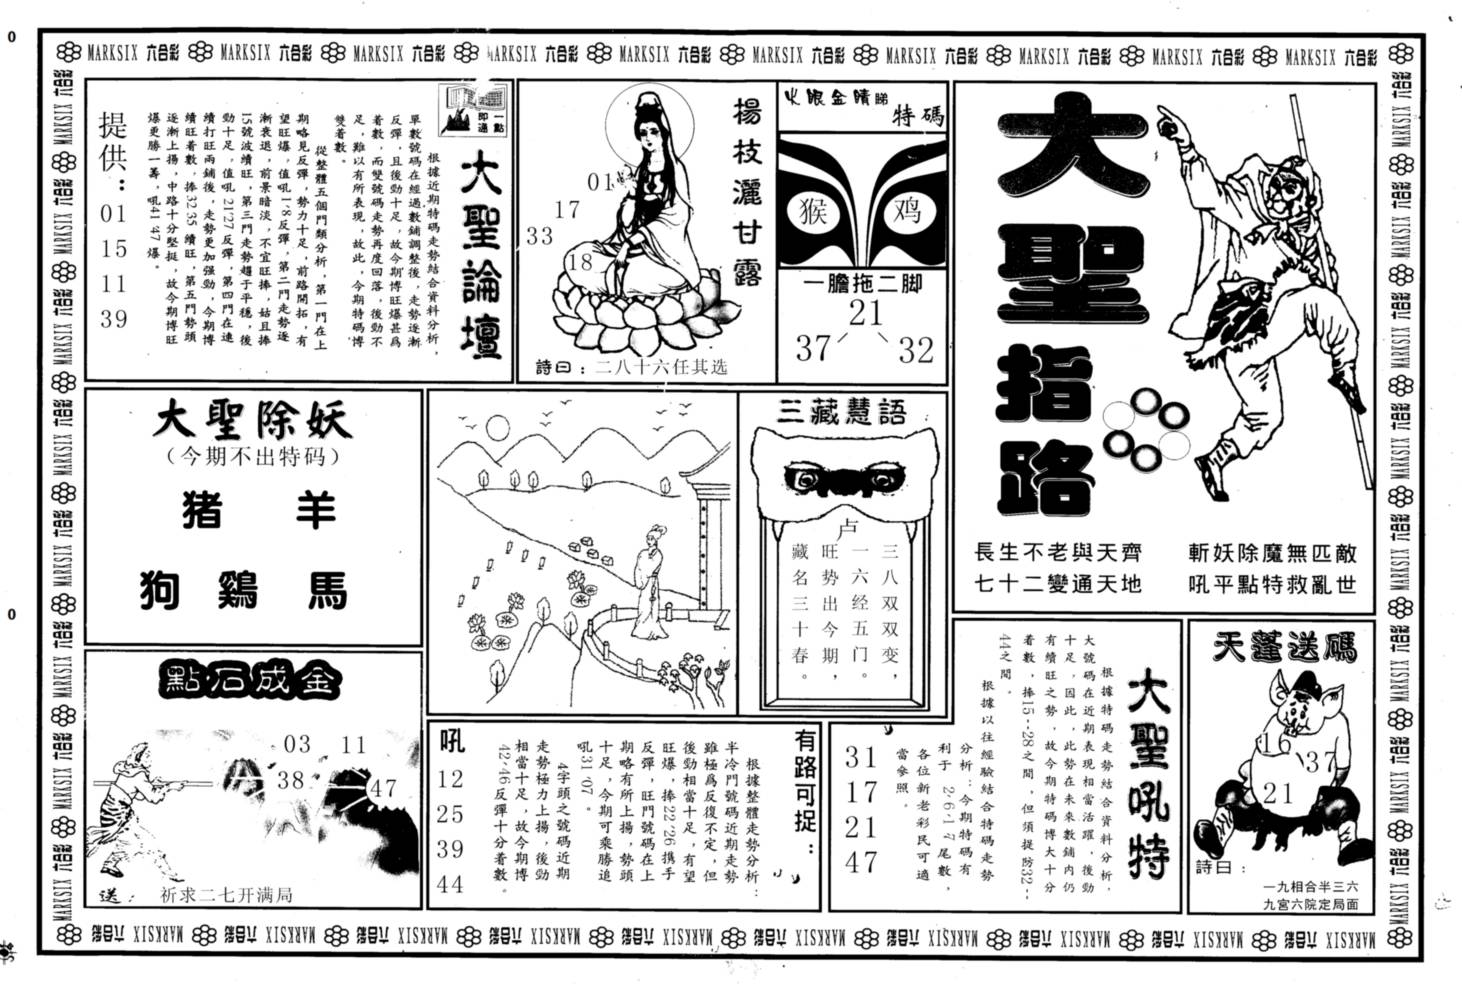 MARKSIX 六合彩 MARKSIX 六合彩 MARKSIX 六合彩 MARKSIX 六合彩 MARKSIX 六合彩 MARKSIX 六合彩 MARKSIX 六合彩 MARKSIX 六合彩 MARKSIX 六合彩 MARKSIX 六合彩
大聖指路
長生不老與天齊
七十二變通天地
斬妖除魔無匹敵
吼平點特救亂世
火眼金睛睇
特碼
猴
鸡
一膽拖二脚
21
37
32
楊枝灑甘露
01
17
33
18
詩曰：二八十六任其选
一點
即通
大聖論壇
根據近期特碼走勢結合資料分析，
單數號碼在經過數鋪調整後，走勢逐漸
反彈，且後勁十足，故今期博旺爆甚爲
着數，而雙號碼走勢再度回落，後勁不
足，難以有所表現，故此，今期特碼博
雙着數。
從整體五個門類分析，第一門在上
期略見反彈，勢力十足，前路開拓，有
望旺爆，值吼1·8反彈，第二門走勢逐
漸衰退，前景暗淡，不宜旺捧，姑且捧
15號波續旺，第三門走勢趨于平穩，後
勁十足，值吼21·27反彈，第四門在連
續打旺兩鋪後，走勢更加强勁，今期博
續旺着數，捧32·35續旺，第五門勢頭
逐漸上揚，中路十分堅挺，故今期博旺
爆更勝一籌，吼41·47爆。
提供：
01
15
11
39
大聖除妖
（今期不出特码）
猪 羊
狗 鷄 馬
三藏慧語
卢
三八双双变，
一六经五门。
旺势出今期，
藏名三十春。
點石成金
03 11
38
47
送： 祈求二七开满局
有路可捉：
根據整體走勢分析：
半冷門號碼近期走勢
雖極爲反復不定，但
後勁相當十足，有望
旺爆，捧22·26携手
反彈，旺門號碼在上
期略有所上揚，勢頭
十足，今期可乘勝追
吼31·07。
4字頭之號碼近期
走勢極力上揚，後勁
相當十足，故今期博
42·46反彈十分着數。
吼
12
25
39
44
大聖吼特
根據特碼走勢結合資料分析，
大號碼在近期表現相當活躍，後勁
十足，因此，此勢在未來數鋪内仍
有續旺之勢，故今期特碼博大十分
着數，捧15--28之間，但須提防32--
44之間。
根據以往經驗結合特碼走勢
分析：今期特碼有
利于2·6·1·7尾數，
各位新老彩民可適
當參照。
31
17
21
47
天蓬送碼
16
37
21
詩曰：
一九相合半三六
九宫六院定局面